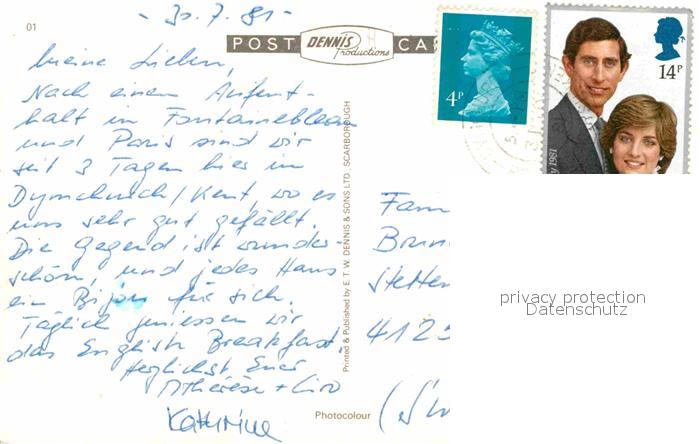 - 30.7.81 -
01
POST CA
DENNIS
Productions
4P
14P
1981
Meine Lieben,
Nach einem Aufent-
halt in Fontainebleau
und Paris sind wir
seit 3 Tagen hier in
Dymchurch/Kent, wo es
uns sehr gut gefällt.
Die Gegend ist wunder-
schön, und jedes Haus
ein Bijou für sich.
Täglich geniessen wir
das English Breakfast.
Herzlichst Eure
Thérèse + Ciro
Kathrine
Printed & Published by E. T. W. DENNIS & SONS LTD. SCARBOROUGH
Photocolour
Fam
Brun
Stetten
4125
privacy protection
Datenschutz